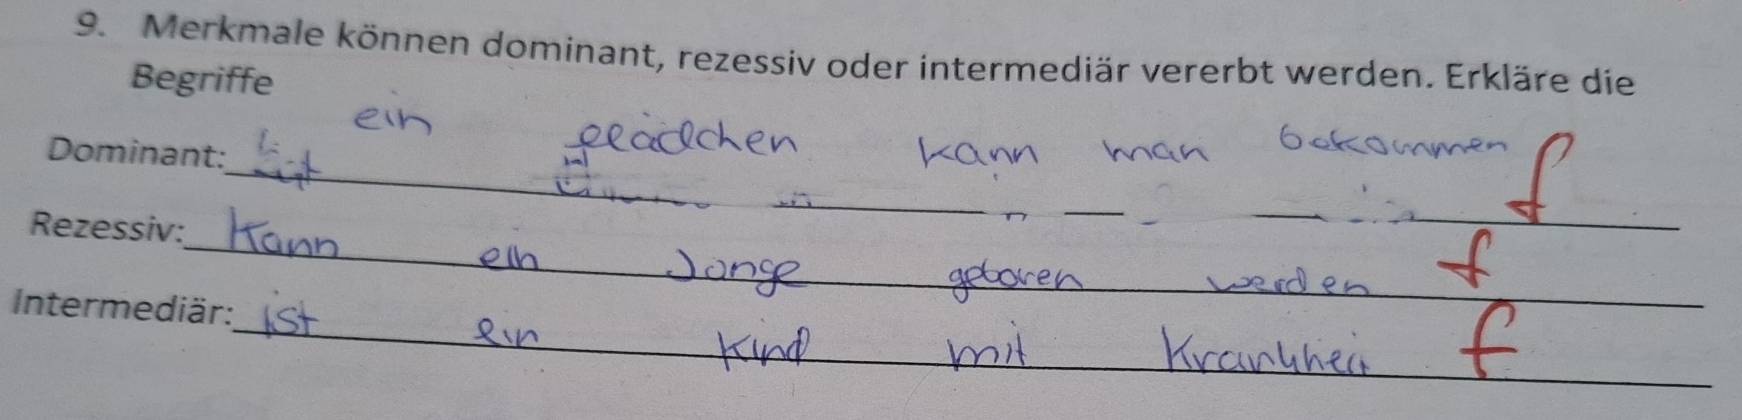 9. Merkmale können dominant, rezessiv oder intermediär vererbt werden. Erkläre die
Begriffe
ein kann man bekommen
Dominant: f
Rezessiv: Kann ein Jonge geboren werden f
Intermediär: ist ein Kind mit Krankheit f